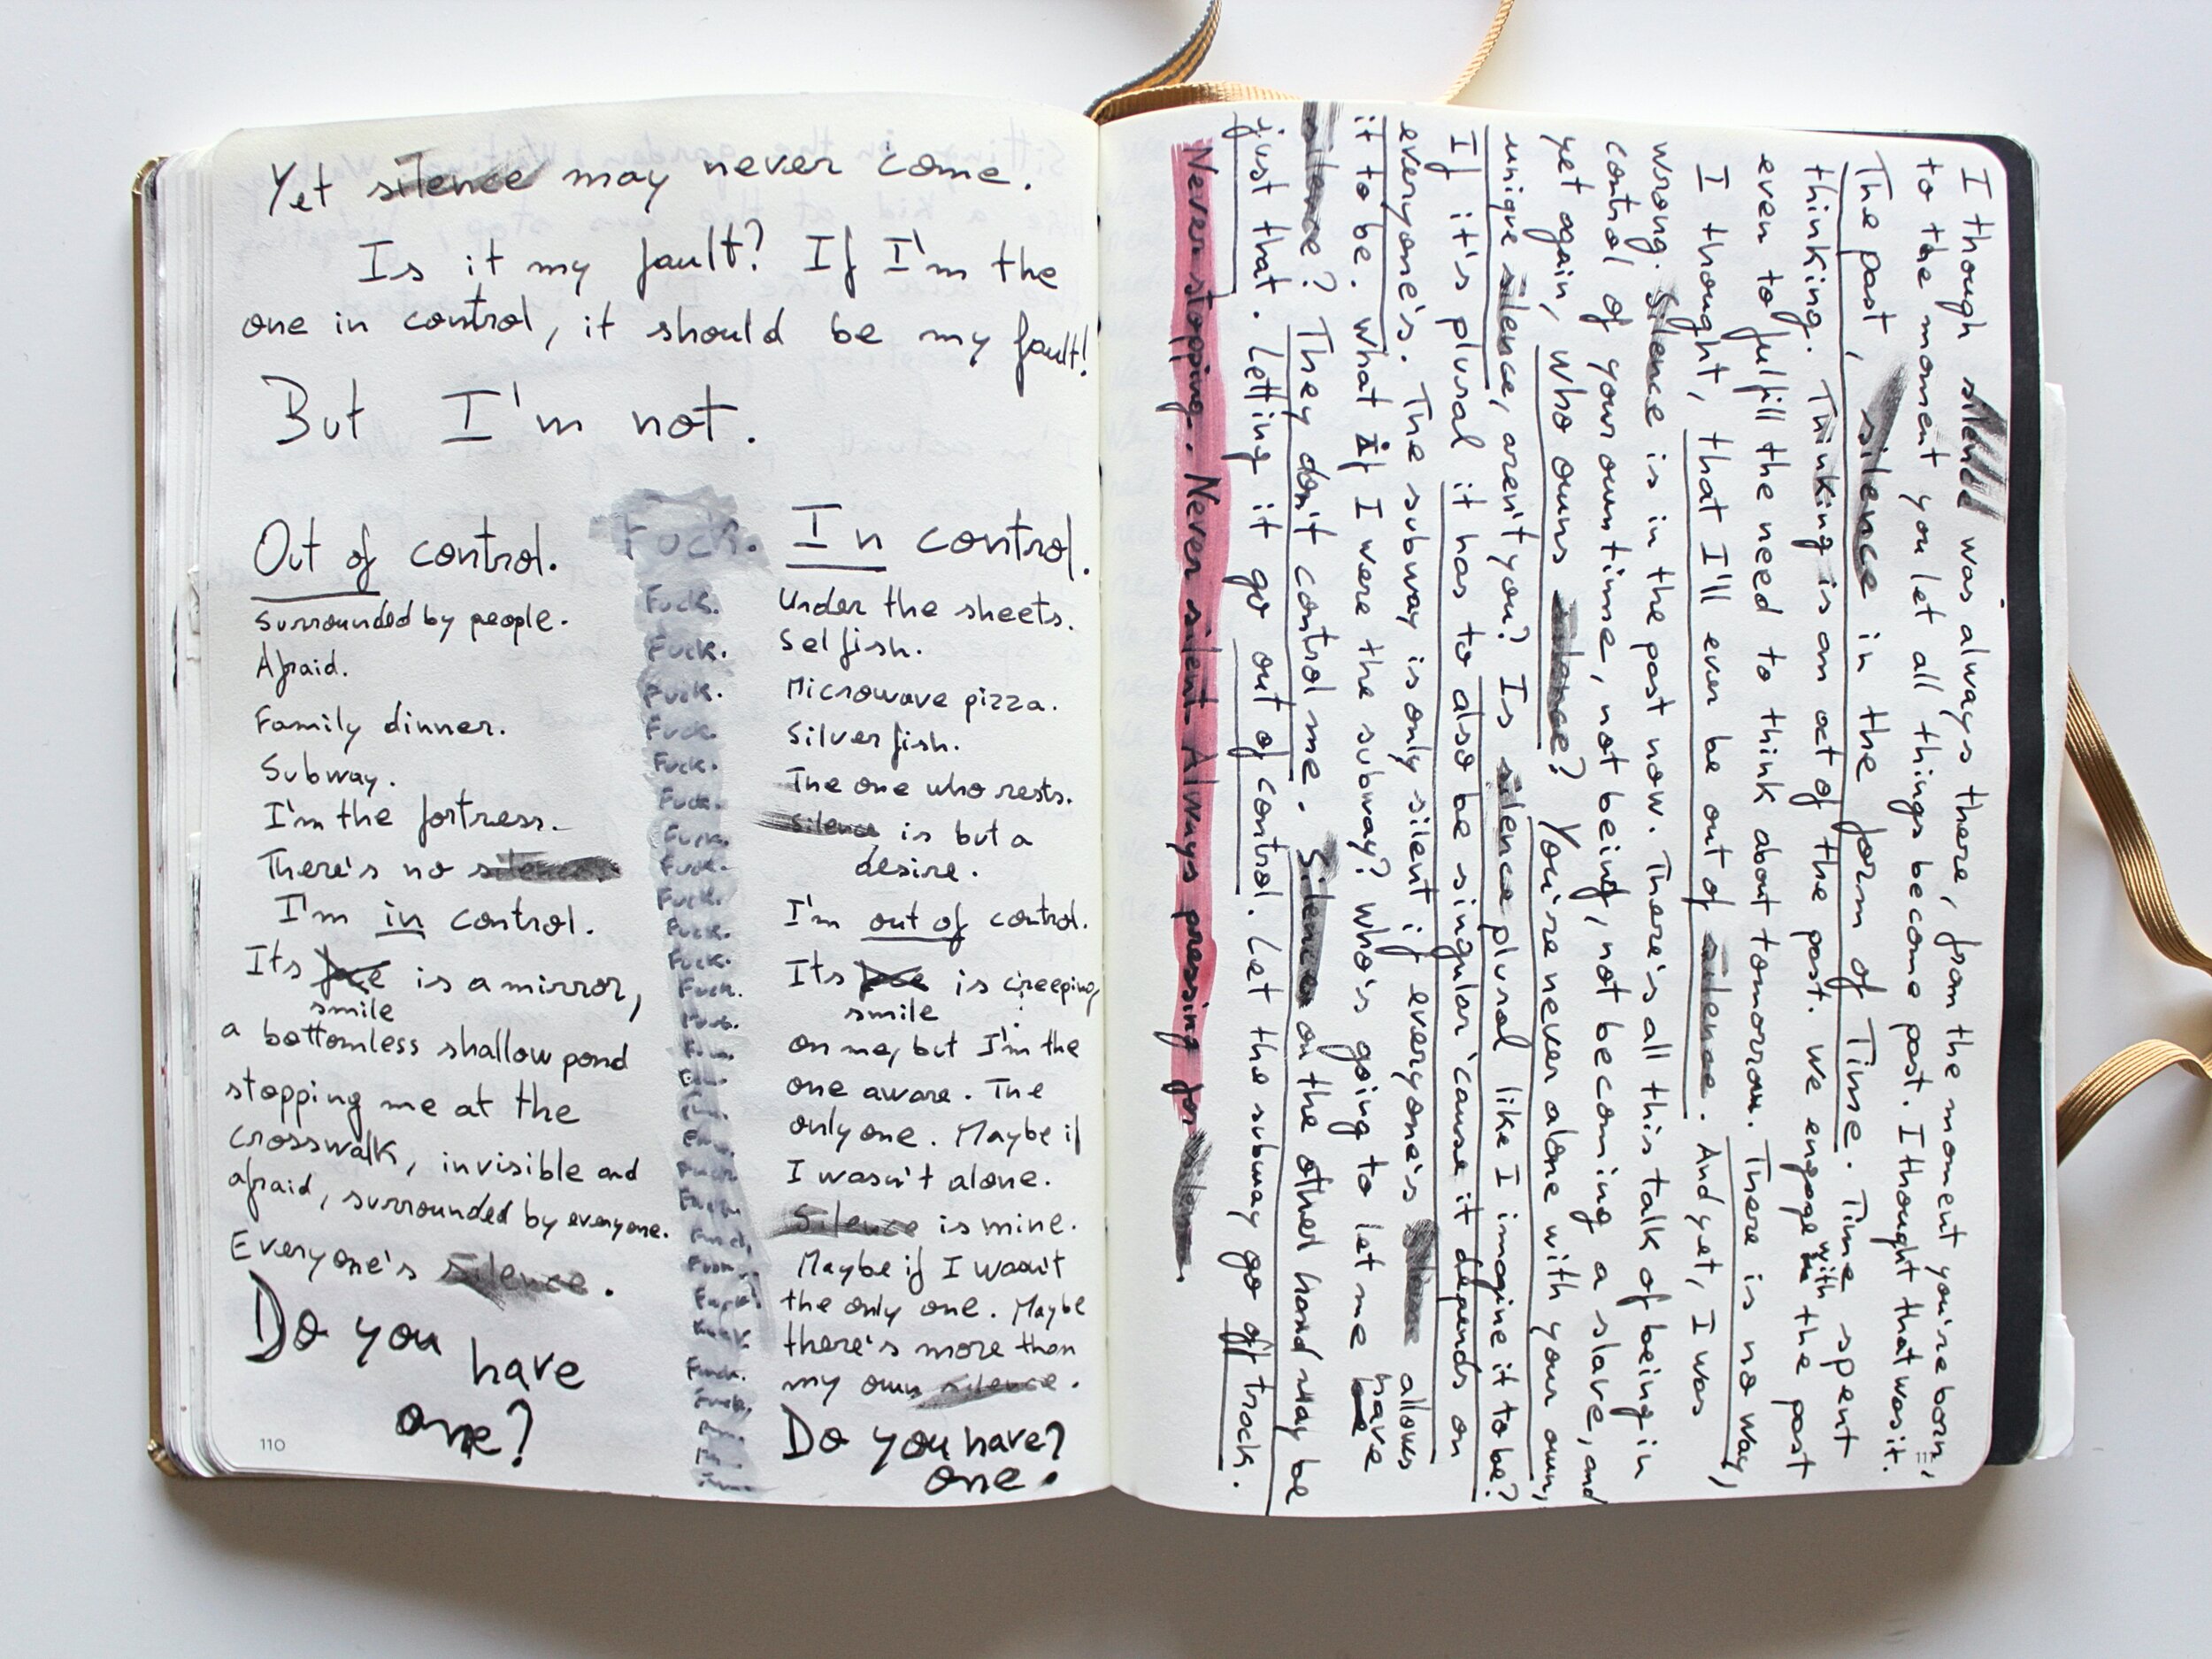 Yet silence may never come.
Is it my fault? If I'm the
one in control, it should be my fault!
But I'm not.
Out of control.
Surrounded by people.
Afraid.
Family dinner.
Subway.
I'm the fortress.
There's no silence.
I'm in control.
Its face is a mirror,
smile
a bottomless shallow pond
stopping me at the
crosswalk, invisible and
afraid, surrounded by everyone.
Everyone's silence.
Do you
have
one?
110
Fuck.
Fuck.
Fuck.
Fuck.
Fuck.
Fuck.
Fuck.
Fuck.
Fuck.
Fuck.
Fuck.
Fuck.
Fuck.
In control.
Under the sheets.
Selfish.
Microwave pizza.
Silverfish.
The one who rests.
Silence is but a
desire.
I'm out of control.
Its face is creeping
smile
on me, but I'm the
one aware. The
only one. Maybe if
I wasn't alone.
Silence is mine.
Maybe if I wasn't
the only one. Maybe
there's more than
my own silence.
Do you have?
one.
I though silence was always there, from the moment you're born,
to the moment you let all things become past. I thought that was it.
The past, silence in the form of Time. Time spent
thinking. Thinking is an act of the past. We engage with the past
even to fulfill the need to think about tomorrow. There is no way,
I thought, that I'll ever be out of silence. And yet, I was
wrong. Silence is in the past now. There's all this talk of being in
control of your own time, not being, not becoming a slave, and
yet again, who owns silence? You're never alone with your own,
unique silence, aren't you? Is silence plural like I imagine it to be?
If it's plural it has to also be singular 'cause it depends on
everyone's. The subway is only silent if everyone's silence allows
it to be. What if I were the subway? Who's going to let me have
silence? They don't control me. Silence on the other hand may be
just that. Letting it go out of control. Let the subway go off track.
Never stopping. Never silent. Always pressing for silence.